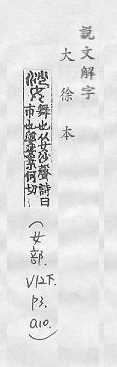 説文解字
大徐本
娑 舞也从女沙聲詩曰
市也媻娑素何切
(女部. V12下. P3. a10.)